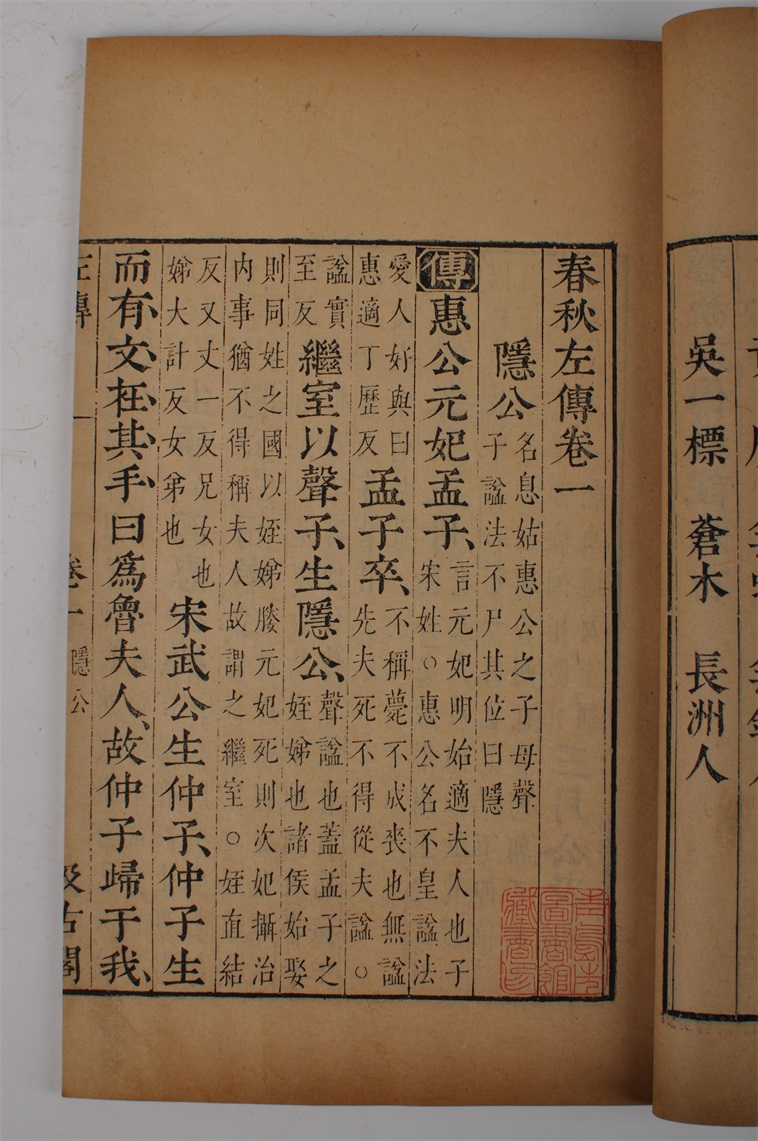 吳一標 蒼木 長洲人
春秋左傳卷一
隱公名息姑惠公之子母聲子諡法不尸其位曰隱
傳惠公元妃孟子、言元妃明始適夫人也子宋姓○惠公名不皇諡法
愛人好與曰惠適丁歷反孟子卒、不稱薨不成喪也無諡先夫死不得從夫諡○
諡實至反繼室以聲子、生隱公、聲諡也蓋孟子之姪娣也諸侯始娶
則同姓之國以姪娣媵元妃死則次妃攝治内事猶不得稱夫人故謂之繼室○姪直結
反又丈一反兄女也娣大計反女弟也宋武公生仲子、仲子生
而有、文、在、其、手、曰爲魯夫人、故仲子歸于我、
左傳 卷一 隱公 汲古閣
青島市圖書館藏書印